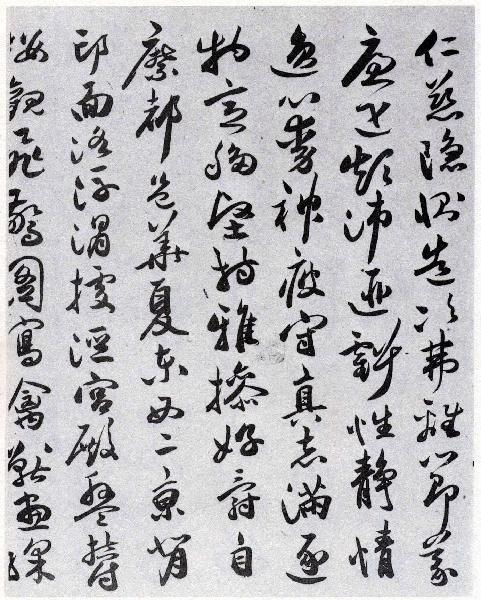 仁慈隱惻造次弗離節義
廉退顛沛匪虧性靜情
逸心動神疲守真志滿逐
物意移堅持雅操好爵自
縻都邑華夏東西二京背
邙面洛浮渭據涇宮殿盤鬱
樓觀飛驚圖寫禽獸畫